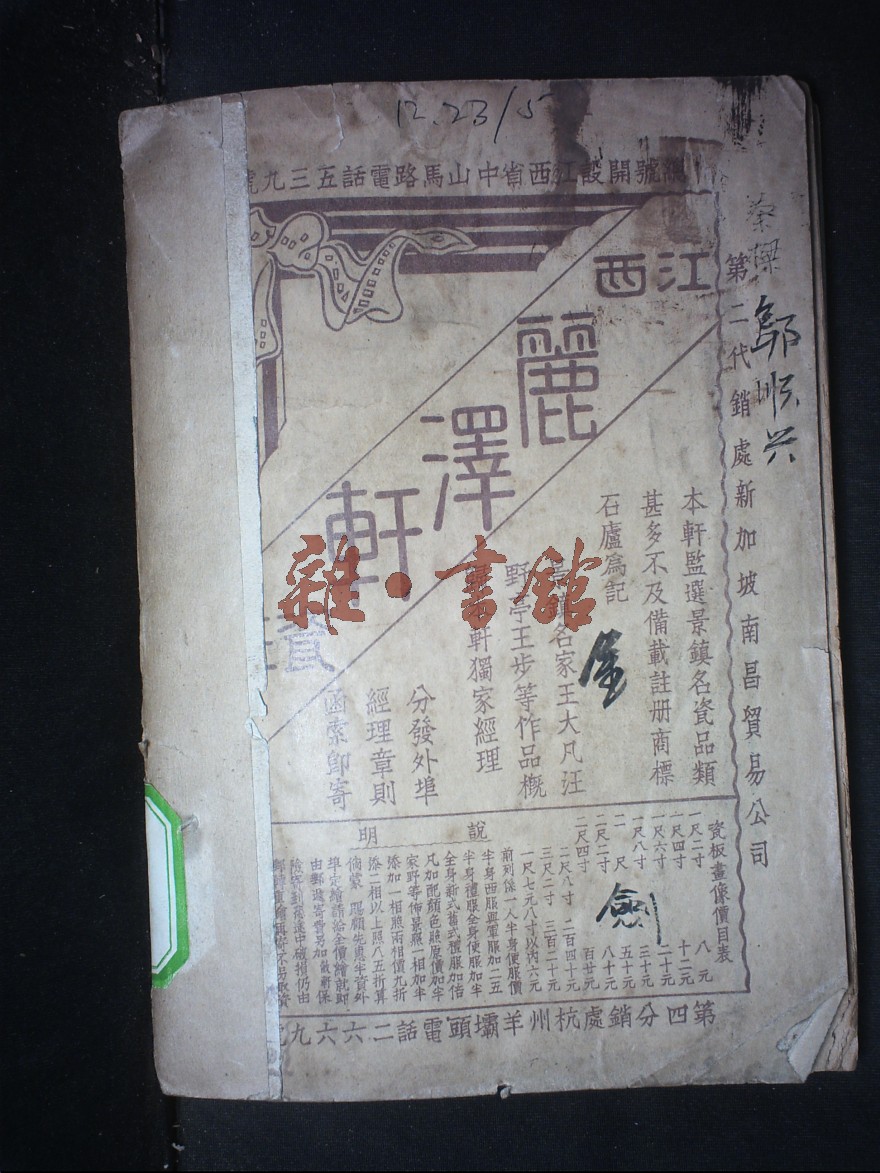 12.23/5
號開設江西省中山馬路電話五三九號
第二代銷處新加坡南昌貿易公司
鄔順兴
江西
麗澤軒
瓷
本軒監選景鎮名瓷品類
甚多不及備載註册商標
石廬爲記
景鎮名家王大凡汪
野亭王步等作品概
歸本軒獨家經理
分發外埠
經理章則
函索卽寄
金
劍
雜·書館
瓷板畫像價目表
一尺二寸 八元
一尺四寸 十二元
一尺六寸 二十元
一尺八寸 三十元
二尺 五十元
二尺二寸 八十元
二尺四寸 百廿元
二尺八寸 二百四十元
三尺二寸 三百二十元
一尺七元八寸以內六元
說明
前列係一人半身便服價
半身西服與軍服加二五
半身禮服全身便服加半
全身新式舊式禮服加倍
凡如配顏色照原價加半
家野等佈景照一相加半
添加一相照兩相價九折
添二相以上照八五折算
倘蒙 賜顧先惠半資外
埠定繪請滙全價繪就卽
由郵遞寄費另加
第四分銷處杭州羊壩頭電話二六六九號